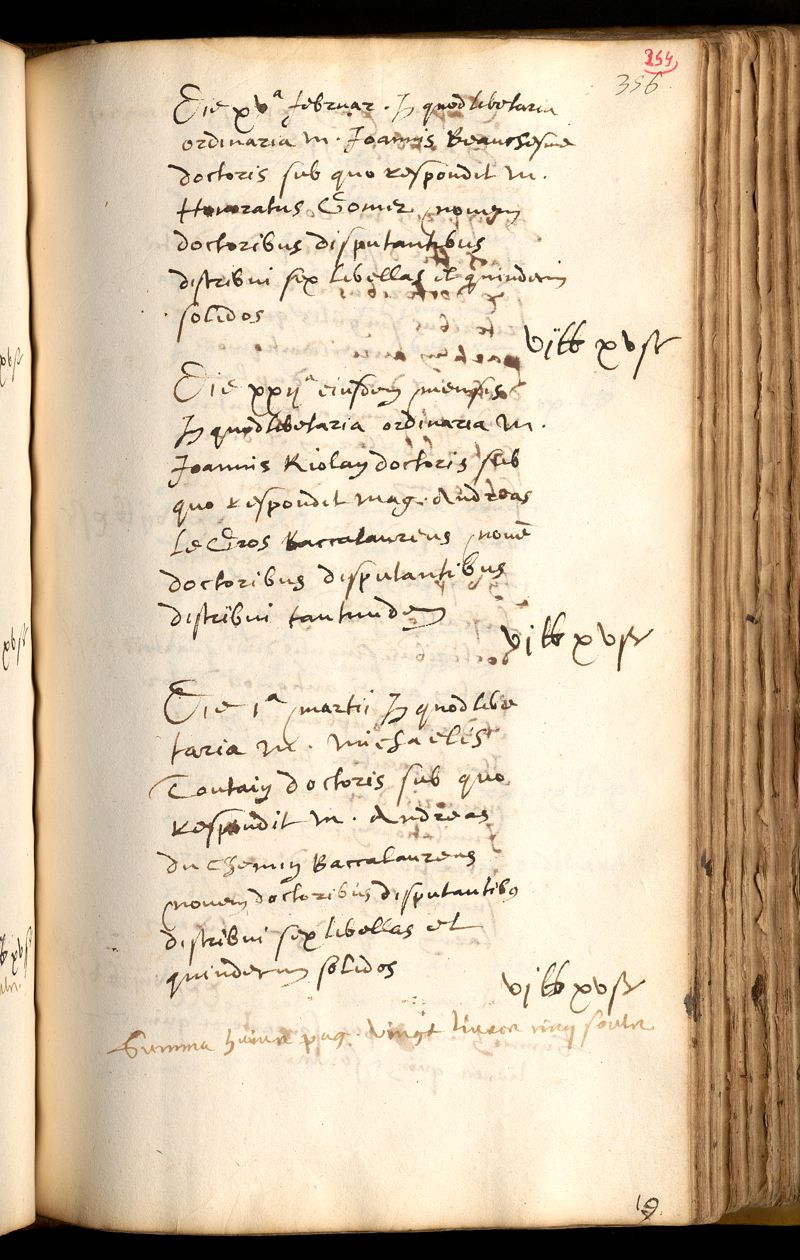 254
356
Die xv^a februar. In quodlibetaria
ordinaria M. Joannis Beauchesne
doctoris sub quo respondit M.
Honoratus Gomer novem
doctoribus disputantibus
distribui sex libellas et quinderim
solidos
vj ℔ xv st
Die xxij^a eiusdem mensis
In quodlibetaria ordinaria M.
Joannis Riolan doctoris sub
quo respondit mag. Andreas
Le Gros Baccalaureus novē
doctoribus disputantibus
distribui tantundem
vj ℔ xv st
Die 1^a martii In quodlibe
taria M. Michaelis
Toutain doctoris sub quo
respondit M. Andreas
du Chemin Baccalaureus
novem doctoribus disputantibꝰ
distribui sex libellas et
quinderim solidos
vj ℔ xv st
Summa huius pag. vingt livres cinq soulz
19